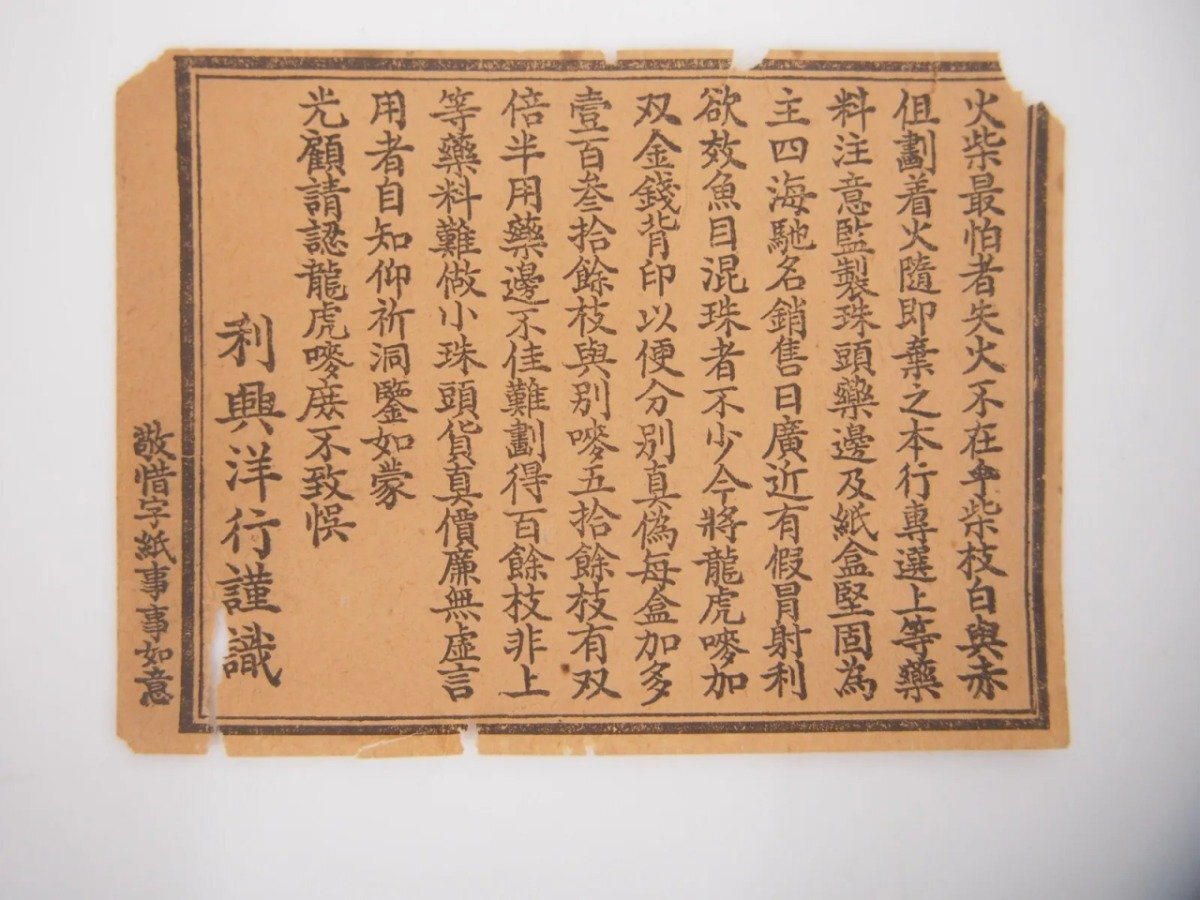 火柴最怕者失火不在乎柴枝白與赤
但劃着火隨即棄之本行專選上等藥
料注意監製珠頭藥邊及紙盒堅固為
主四海馳名銷售日廣近有假冐射利
欲效魚目混珠者不少今將龍虎嘜加
双金錢背印以便分別真偽每盒加多
壹百叁拾餘枝與別嘜五拾餘枝有双
倍半用藥邊不佳難劃得百餘枝非上
等藥料難做小珠頭貨真價廉無虛言
用者自知仰祈洞鑒如蒙
光顧請認龍虎嘜庶不致悮
利興洋行謹識
敬惜字紙事事如意